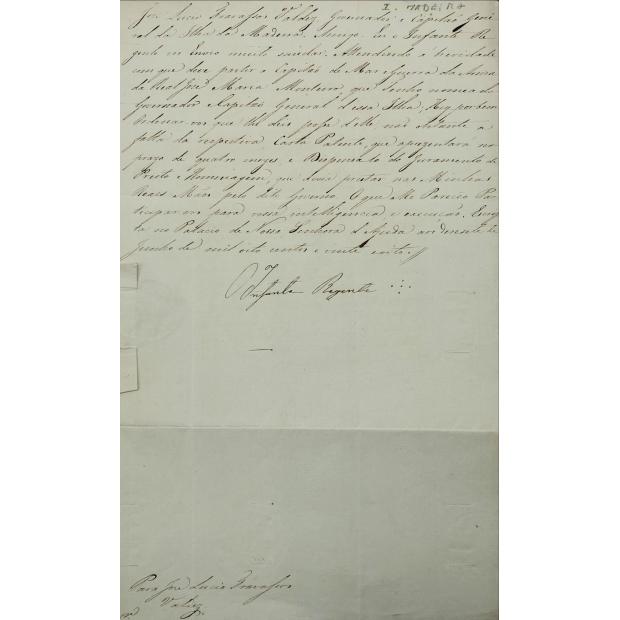 I. MADEIRA
José Lucio Travassos Valdez, Governador e Capitão Gene-
ral da Ilha da Madeira. Amigo. Eu o Infante Re-
gente vos Envio muito saudar. Attendendo á brevidade
com que deve partir o Capitão de Mar e Guerra da Arma-
da Real José Maria Monteiro, que Tenho nomeado
Governador e Capitão General dessa Ilha; Hey por bem
Ordenar-vos que lhe deis posse d'elle, não obstante a
falta da respectiva Carta Patente, que apresentará no
prazo de quatro mezes, e Dispensa-lo do Juramento de
Preito e Homenagem, que devia prestar nas Minhas
Reaes Mãos pelo dito Governo. O que Me Pareceo Par-
ticipar-vos para vossa intelligencia, e execução. Escri-
pta no Palacio de Nossa Senhora d'Ajuda em de
Junho de mil oito centos e vinte e oito.
Infante Regente
Para José Lucio Travassos
Valdez.